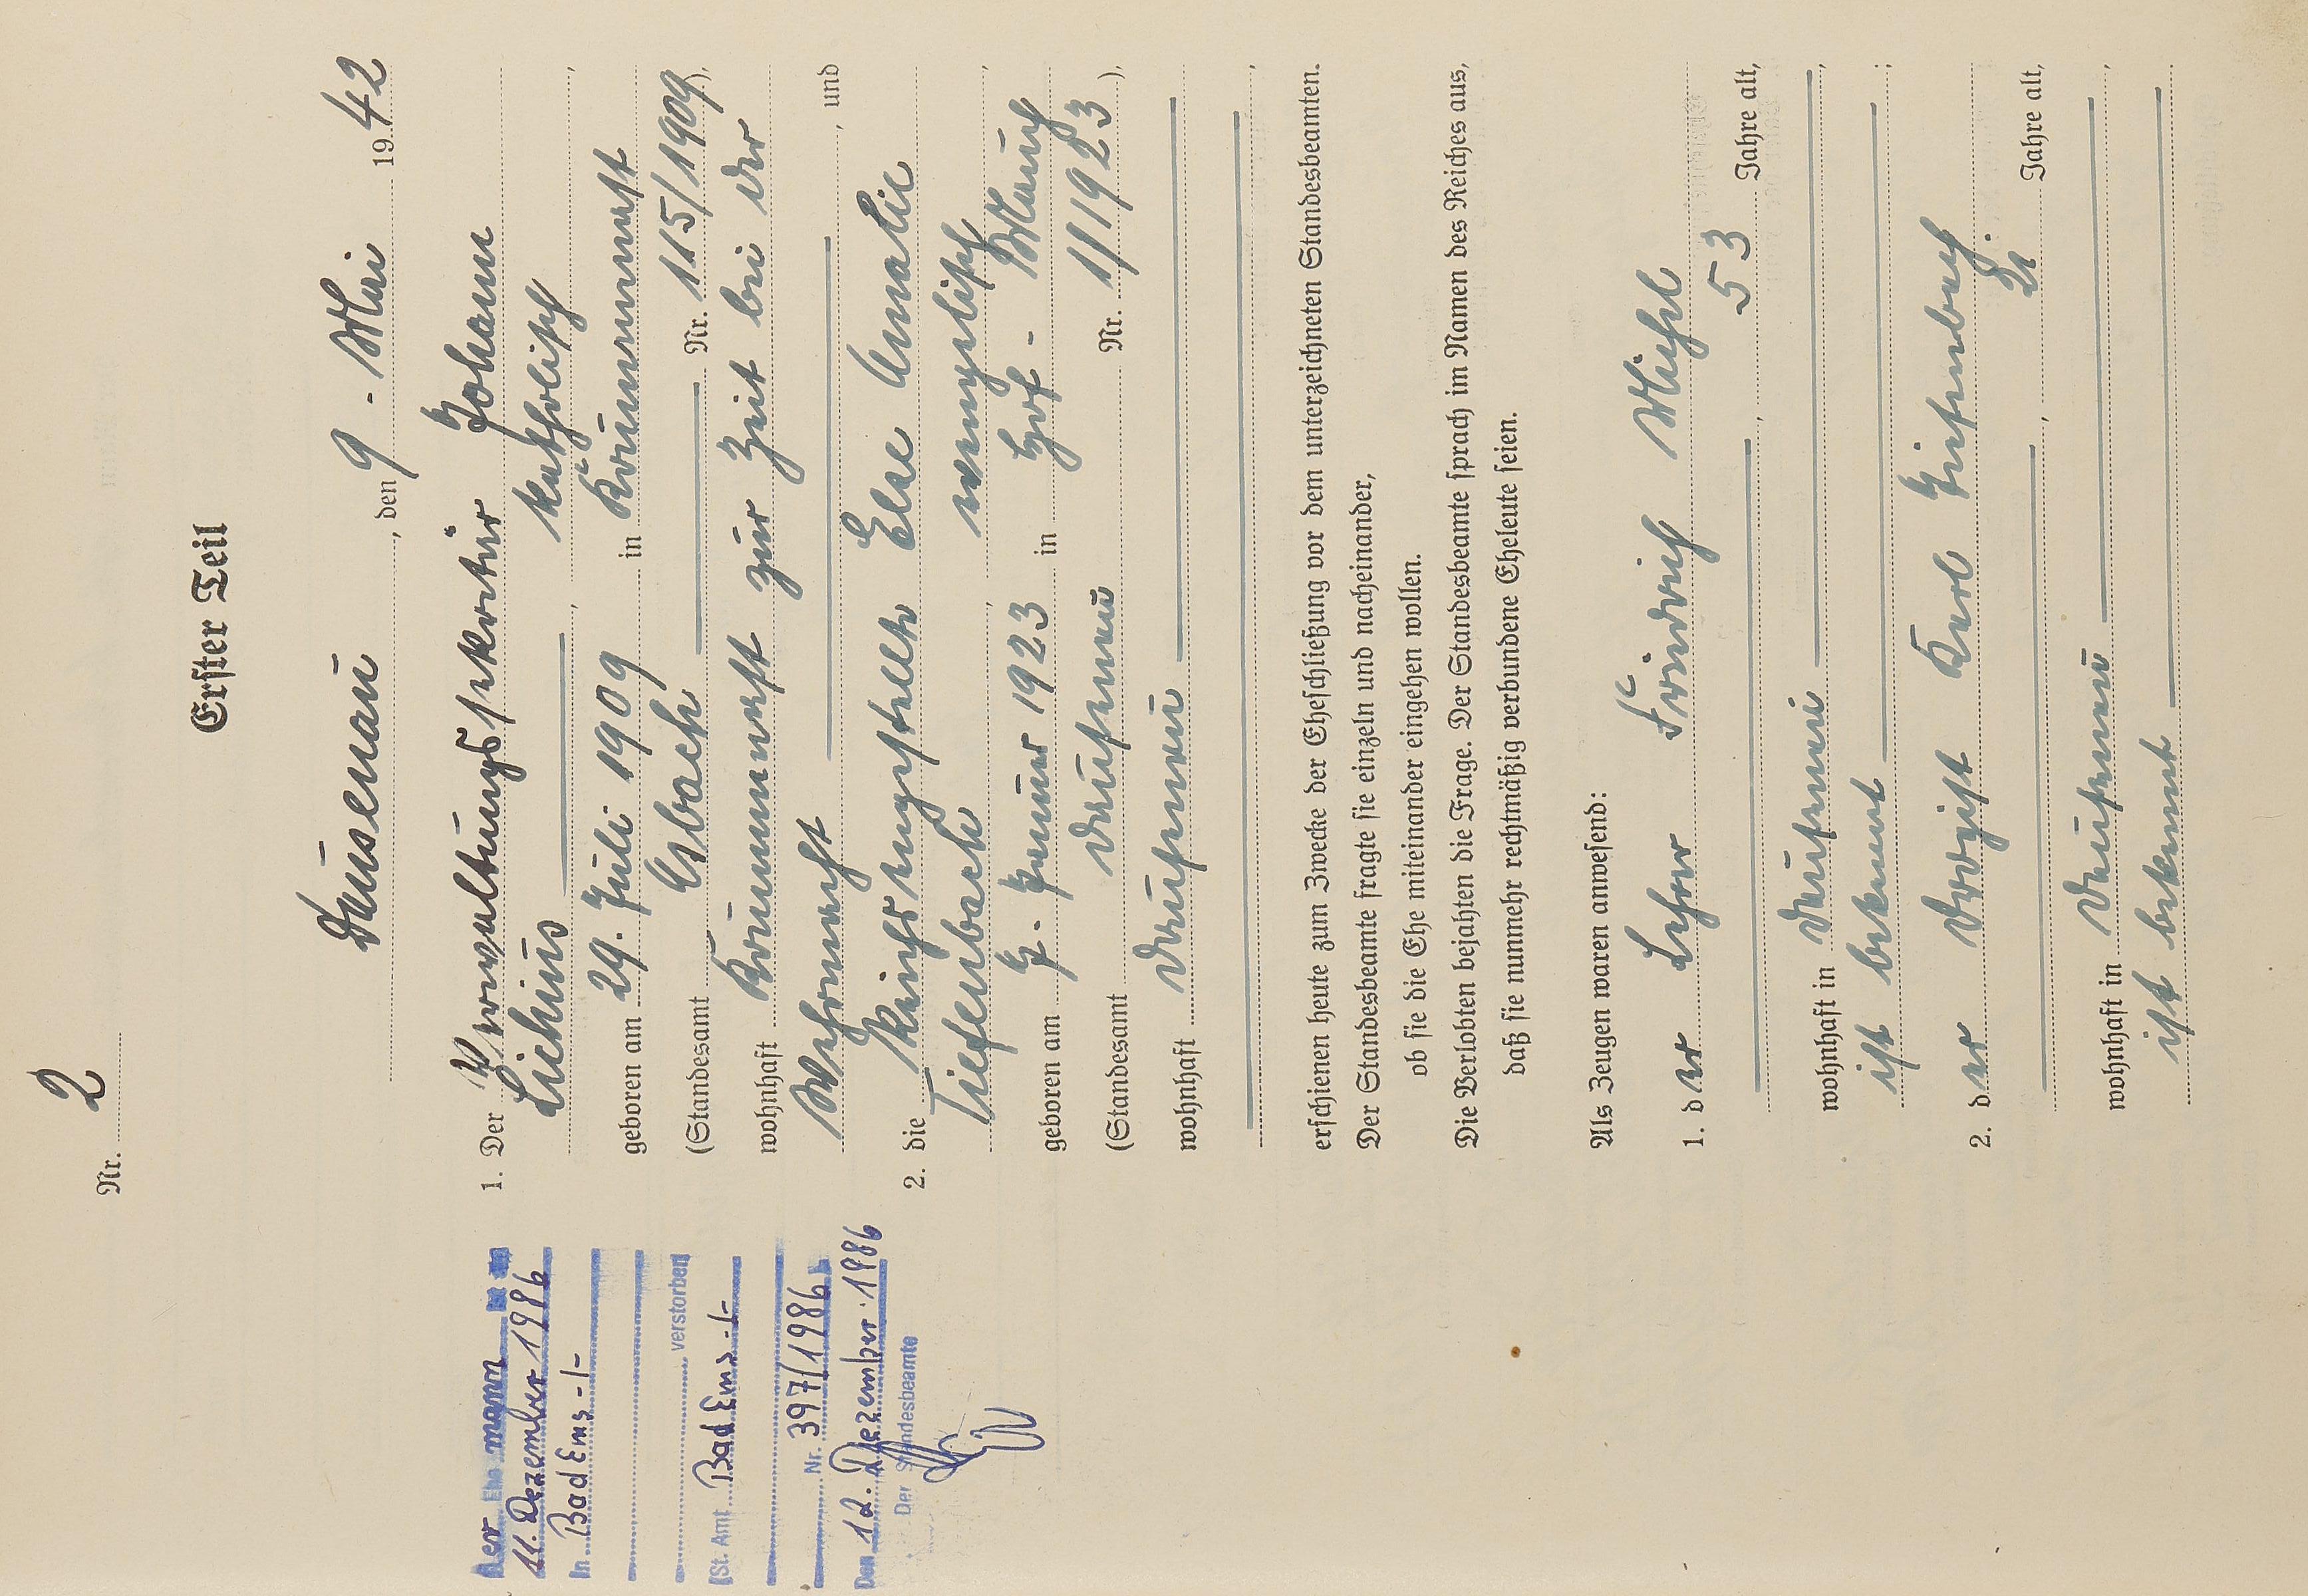 Nr. 2
Erster Teil
Dausenau, den 9. Mai 1942
1. Der Verwaltungssekretär Johann
Lichius katholisch,
geboren am 29. Juli 1909 in
(Standesamt Esbach Nr. 115/1909),
wohnhaft zur Zeit bei der
Wehrmacht, und
2. die Else Amalie
Tiefenbach evangelisch,
geboren am 7. Januar 1923 in Hof
(Standesamt Dausenau Nr. 1/1923),
wohnhaft Dausenau
,
erschienen heute zum Zwecke der Eheschließung vor dem unterzeichneten Standesbeamten.
Der Standesbeamte fragte sie einzeln und nacheinander,
ob sie die Ehe miteinander eingehen wollen.
Die Verlobten bejahten die Frage. Der Standesbeamte sprach im Namen des Reiches aus,
daß sie nunmehr rechtmäßig verbundene Eheleute seien.
Als Zeugen waren anwesend:
1. der Lehrer Friedrich
, 53 Jahre alt,
wohnhaft in Dausenau,
ist bekannt;
2. der Drogist Karl Tiefenbach
, 21 Jahre alt,
wohnhaft in Dausenau,
ist bekannt
Der Ehemann ist am
11. Dezember 1986
in Bad Ems -/-
verstorben
(St. Amt Bad Ems -/-
Nr. 397/1986)
Den 12. Dezember 1986
Der Standesbeamte